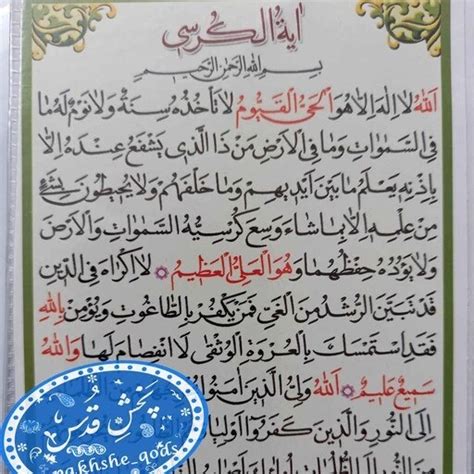 آيةُ الكرسي
بِسْمِ اللهِ الرَّحْمٰنِ الرَّحيمِ
اَللهُ لا اِلٰهَ اِلاّ هُوَ الْحَيُّ الْقَيُّومُ لا تَأْخُذُهُ سِنَةٌ وَلا نَوْمٌ لَهُ ما
فِي السَّمٰوَاتِ وَما فِي الْاَرْضِ مَنْ ذَا الَّذي يَشْفَعُ عِنْدَهُ اِلاّ
بِاِذْنِهِ يَعْلَمُ ما بَيْنَ اَيْديهِمْ وَما خَلْفَهُمْ وَلا يُحيطُونَ بِشَيْءٍ
مِنْ عِلْمِهِ اِلاّ بِما شاءَ وَسِعَ كُرْسِيُّهُ السَّمٰوَاتِ وَالْاَرْضَ
وَلا يَؤُدُهُ حِفْظُهُما وَهُوَ الْعَلِيُّ الْعَظيمُ لا اِكْراهَ فِي الدّينِ
قَدْ تَبَيَّنَ الرُّشْدُ مِنَ الْغَيِّ فَمَنْ يَكْفُرْ بِالطّاغُوتِ وَيُؤْمِنْ بِاللهِ
فَقَدِ اسْتَمْسَكَ بِالْعُرْوَةِ الْوُثْقٰى لَا انْفِصامَ لَها وَاللهُ
سَميعٌ عَليمٌ اَللهُ وَلِيُّ الَّذينَ اٰمَنُوا
اِلَى النُّورِ وَالَّذينَ كَفَرُوا
پخش قدس
pakhshe_qods